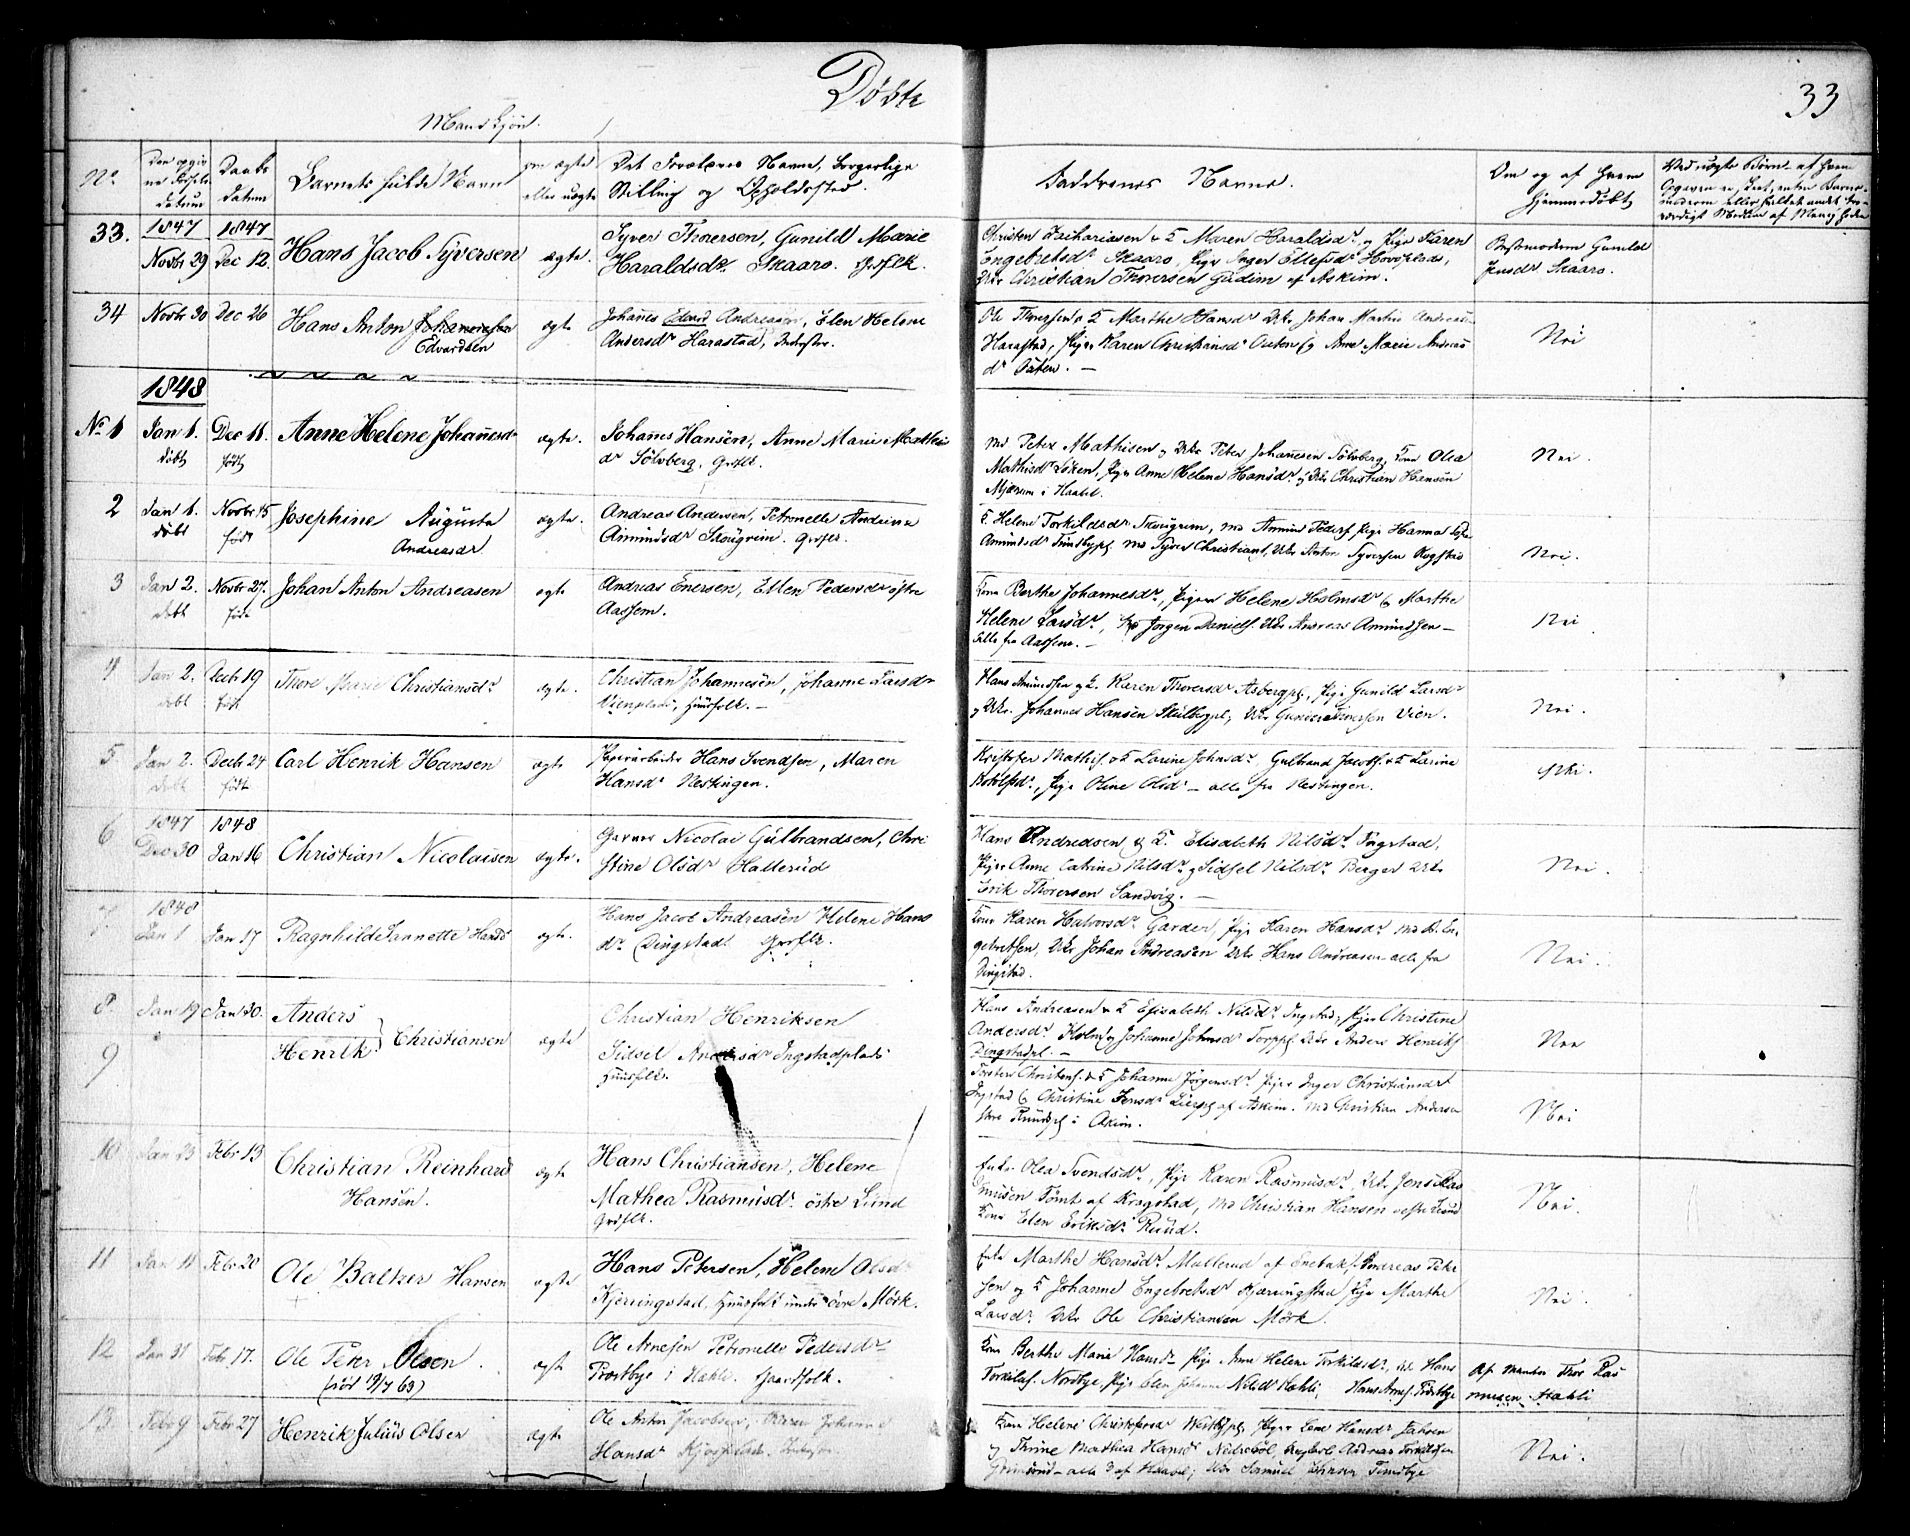 Døbte
33
Mandkjøn.
No
Den opgivne Fødselsdatum
Daabs Datum
Barnets fulde Navn
om ægte eller uægte
Det Forældres Navne, borgerlige Stilling og Opholdssted.
Faddrenes Navne.
Om og af hvem hjemmedøbt
33.
1847
Novbr 29
1847
Dec 12.
Hans Jacob Syversen
ægte.
Syver Thorersen, Gunild Marie
Haraldsdr. Skaaro. Grdflk.
Christen Zachariasen & K Maren Haraldsdr, og Pige Karen
Engebretsdr Skaaro, Pige Inger Ellefsdr Hovsplads,
Christian Thorersen Gudim af Askim.
Bestemodern Gunild
Jensdr Skaaro.
34
Novbr 30
Dec 26
Hans Anton Johannesen
Edvardsen
ægte
Johanes Edvard Andreasen, Elen Helene
Andersdr Harastad, Inderster.
Ole Thorersen & K Marthe Hansdr Johan Martin Andreas
Harastad, Pige Karen Christiansdr Østen og Anne Marie Andreas
dr Østen. —
Nei
1848
No 1
Jan 1.
døbt
Dec 11.
født
Anne Helene Johanesdr
ægte.
Johanes Hansen, Anne Marie Mathis
dr Sölvberg. Grdflk.
Md Peter Mathisen og Peter Johannesen Sölvberg, Kone Olea
Mathisdr Löken, Pige Anne Helene Hansdr og Christian Hansen
Mjærum i Haaböl.
Nei.
2
Jan 1.
døbt
Novbr 15
født
Josephine Augusta
Andreasdr
ægte.
Andreas Andersen, Petronelle Andrine
Amundsdr Skougrim. Grdflk.
K. Helene Torkildsdr Skougrum, Md Amund Peders. Pige Hanna
Amundsdr Md Syver Christians, Anton Syversen Rogstad
Nei.
3
Jan 2.
døbt
Novbr 27.
født
Johan Anton Andreasen
ægte
Andreas Enersen, Ellen Pedersdr østre
Aassem.
Kone Berthe Johannesdr, Piger Helene Holmsdr og Marthe
Helene Larsdr, Jørgen Daniels. Andreas Amundsen —
alle fra Aassem. —
Nei
4
Jan 2.
døbt
Decbr 19
født
Thore Marie Christiansdr
ægte.
Christian Johannesen, Johanne Larsdr
Vienplads, Huusfolk. —
Hans Amundsen og K. Karen Thorersdr Asbergpl, Pige Gunild Larsdr
og Johannes Hansen Skulbergpl, Gunder Iversen Vien.
Nei.
5
Jan 2.
døbt
Decbr 24
født
Carl Henrik Hansen
ægte
Papirarbeider Hans Svendsen, Maren
Hansdr Nestingen.
Kristofer Mathis. & K Larine Johnsdr Gulbrand Jacobs. & K Larine
Pige Oline Olsdr — alle fra Nestingen.
Nei.
6
1847
Dec 30
1848
Jan 16
Christian Nicolaisen
ægte.
Garver Nicolai Gulbrandsen, Chri
stine Olsdr Hallerud
Hans Andreasen & K. Elisabeth Nilsdr Ingstad,
Pige Anne Catrine Nilsdr og Sidsel Nilsdr Berger
Erik Thorersen Sandvig. —
Nei.
7
1848
Jan 1
Jan 17
Ragnhilde Jannette Hansdr
ægte.
Hans Jacob Andreasen Helene Hans
dr Dingstad. Grdflk.
Kone Karen Halvorsdr Garder, Pige Karen Hansdr Md H. En
gebretsen, Johan Andreasen Hans Andreasen — alle fra
Dingstad.
Nei.
8
9
Jan 19
Jan 30.
Anders
Henrik
Christiansen
ægte
Christian Henriksen
Sidsel Andersdr Ingstadplads
Huusfolk.
Hans Andreasen & K Elisabeth Nilsdr Ingstad, Pige Christine
Andersdr Holm og Johanne Johnsdr Torppl Anders Henriks
Dingstadpl. —
Nei
Torsten Christens. & K Johanne Jörgensdr Pige Inger Christiansdr
Ingstad og Christine Jensdr af Askim. Md Christian Andersen
store Rundpl i Askim.
Nei
10
Jan 23
Febr 13
Christian Reinhard
Hansen.
ægte
Hans Christiansen, Helene
Mathea Rasmusdr østre Lund
Grdflk.
Enke Olea Svendsdr, Pige Karen Rasmusdr, Jens Ras
musen Tömt af Kragstad, Md Christian Hansen østre Lund
Kone Elen Eriksdr Ruud.
Nei.
11
Jan 11
Febr 20
Ole Balker Hansen
ægte
Hans Petersen, Helene Olsdr
Kjerringstad, Huusfolk under övre Mörk.
Enke Marthe Hansdr Mullerud af Enebak, Andreas Peter
sen og K Johanne Engebretsdr Kjærringstad Pige Marthe
Larsdr Ole Christiansen Mörk.
Nei.
12
Jan 31
Febr 17.
Ole Peter Olsen
(död 19/7 69)
ægte
Ole Arnesen Petronelle Pedersdr
Præstbye i Hæhli. Gaardfolk.
Kone Berthe Marie Hansdr Pige Anne Helene Torkildsdr, Hans
Torkilds. Nordbye, Pige Elen Johanne Nilsdr Hæhli, Hans Arnes. Præstbye
Af Manden Thor Ras
musen Hæhli
13.
Febr 9
Febr 27
Henrik Julius Olsen
ægte
Ole Anton Jacobsen, Karen Johanne
Hansdr
Kone Helene Christofersdr Piger Lene Hansdr
og Thrine Mathea Hansdr Nedrebøl, Ungkarl Andreas Torkildsen
Grimsrud — alle 3 af Haabøl; Samuel Timsbye
Nei.